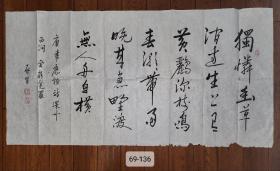 獨憐幽草
澗邊生上有
黃鸝深樹鳴
春潮帶雨
晚來急野渡
無人舟自橫
唐韋應物詩滁州
西澗
69-136